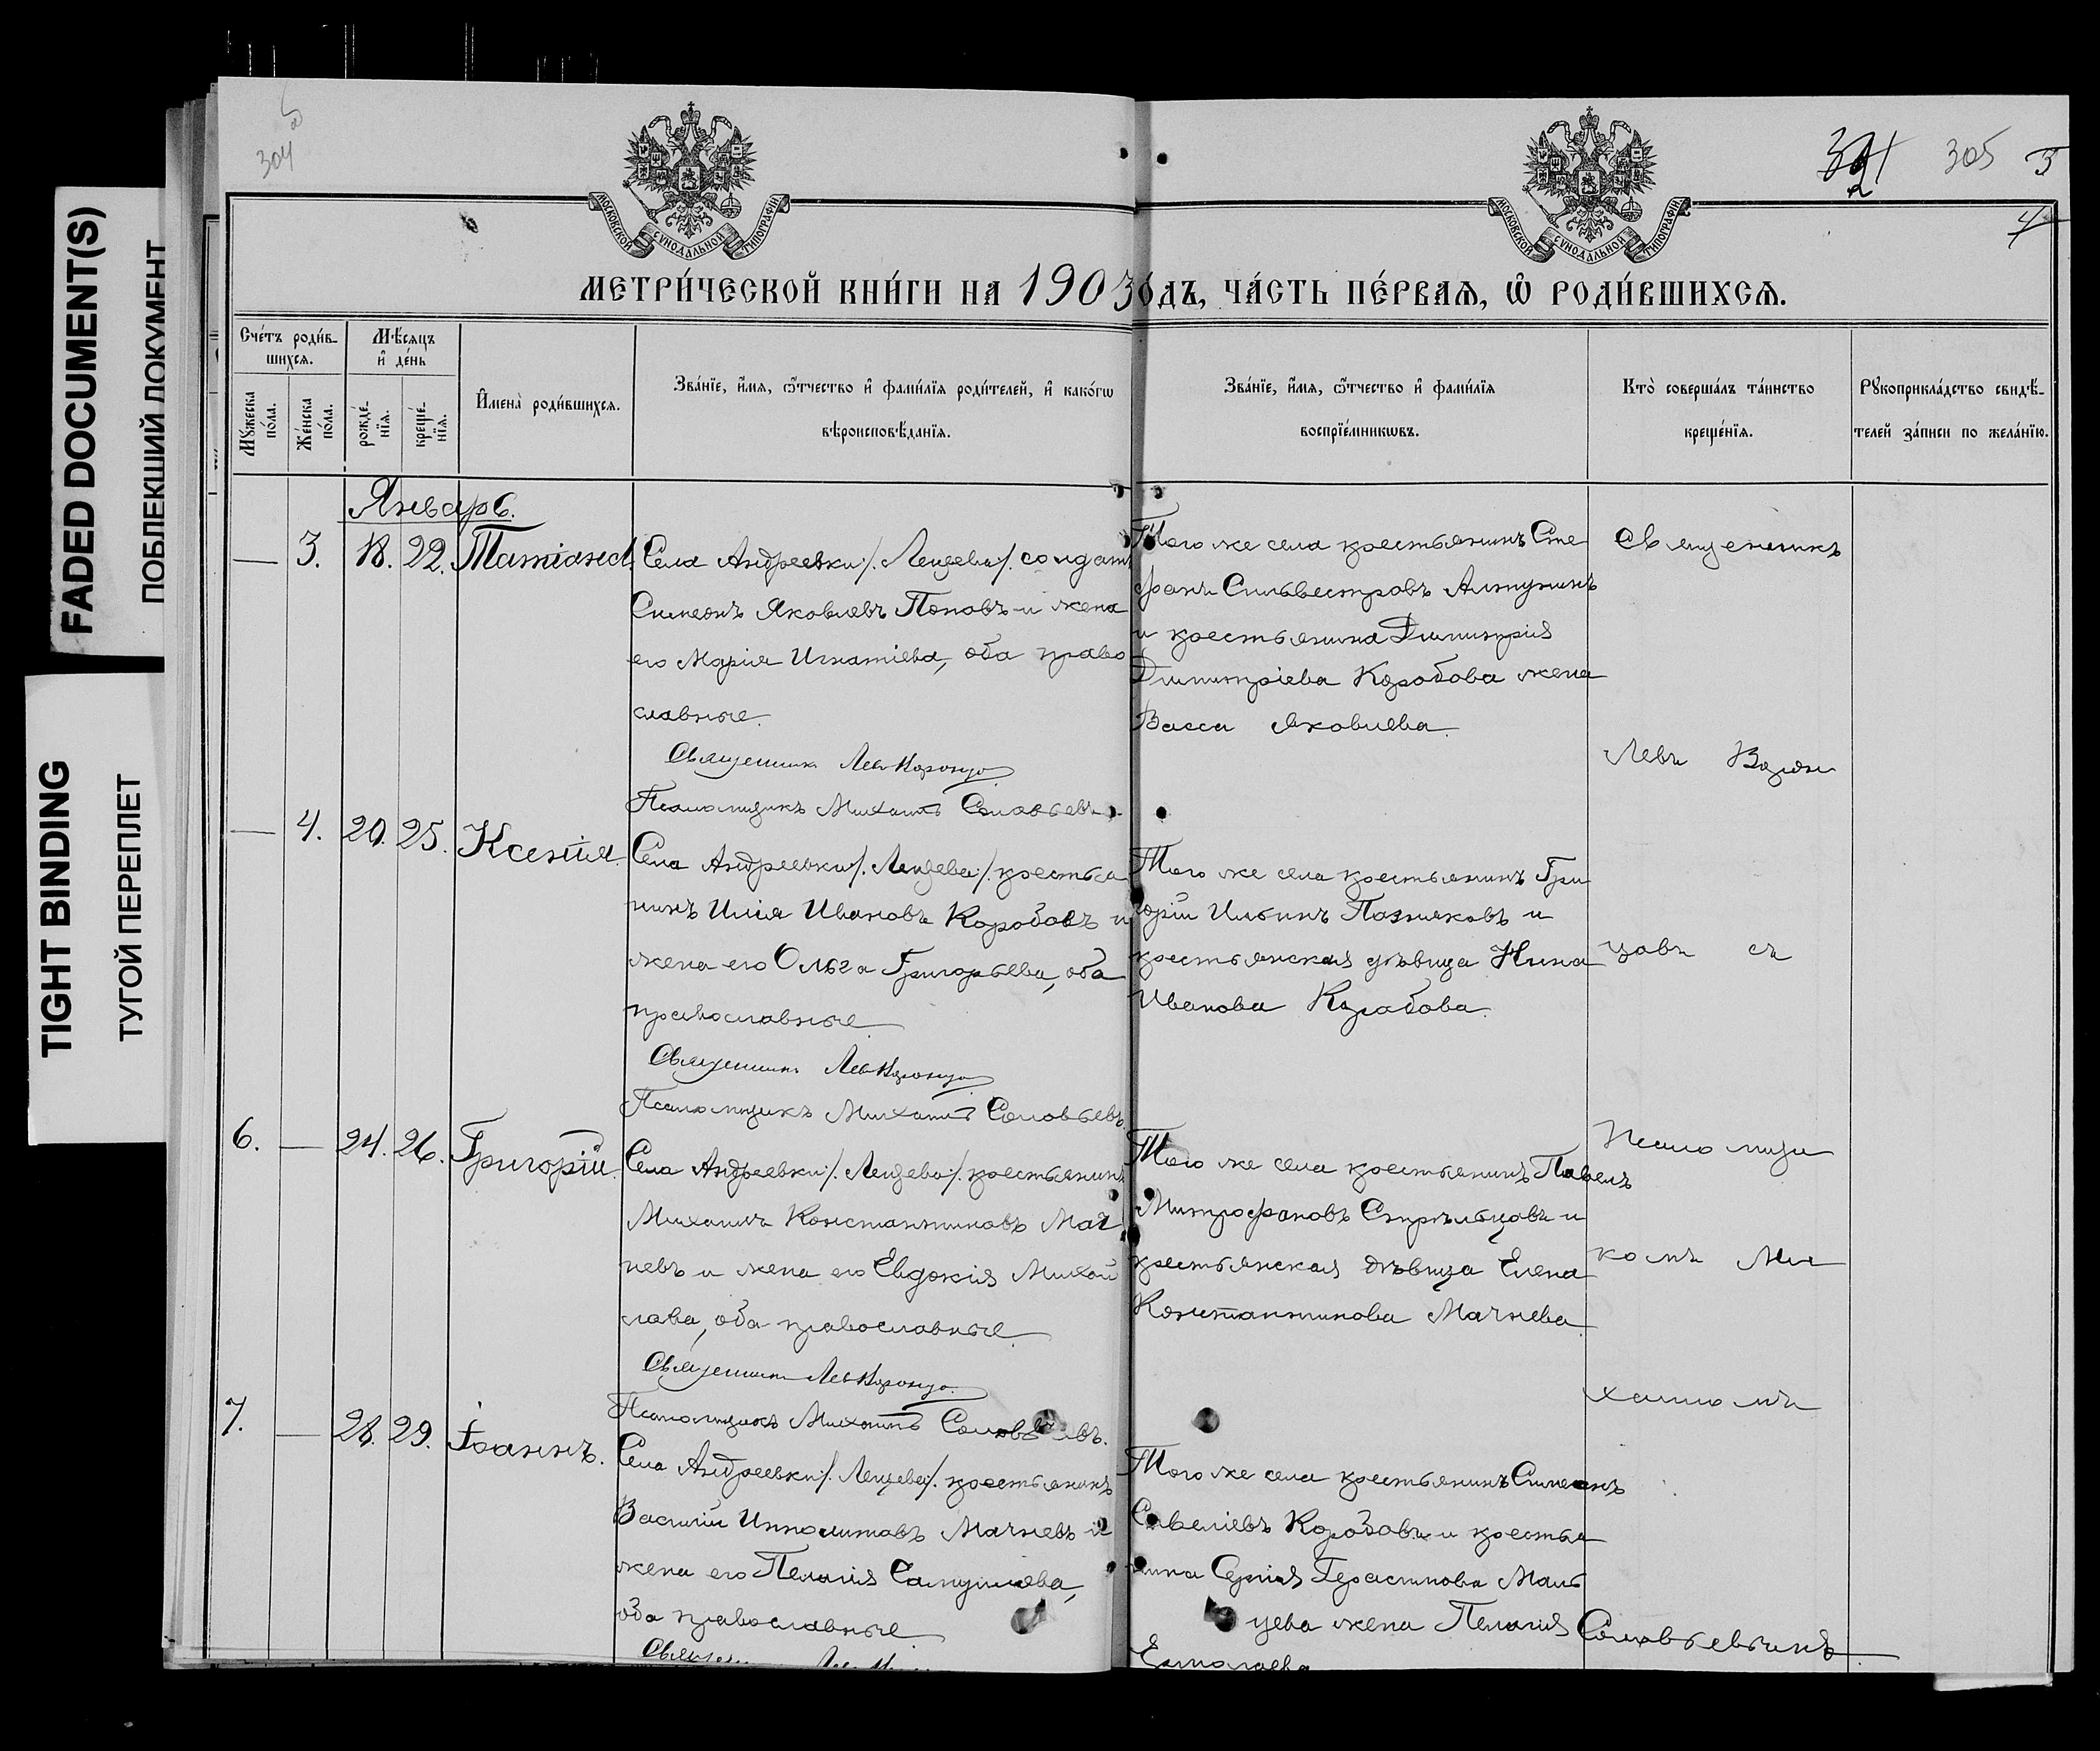 FADED DOCUMENT(S)
ПОБЛЕКШИЙ ДОКУМЕНТ
TIGHT BINDING
ТУГОЙ ПЕРЕПЛЕТ
304
305
5
4
МОСКОВСКОЙ СѴНОДАЛЬНОЙ ТИПОГРАФІИ
МОСКОВСКОЙ СѴНОДАЛЬНОЙ ТИПОГРАФІИ
МЕТРИ́ЧЕСКОЙ КНИ́ГИ НА 1903 ѻ́дъ, ЧА́СТЬ ПЕ́РВАѦ, Ѡ РОДИ́ВШИХСѦ.
Сче́тъ роди́в-
шихсѧ.
Мѣ́сѧцъ
и҆ де́нь
Мꙋ́жеска по́ла.
Же́нска по́ла.
рожде́-
нїѧ.
креще́-
нїѧ.
И҆мена̀ роди́вшихсѧ.
Зва́нїе, и҆́мѧ, ѻ҆́тчество и҆ фами́лїѧ роди́телей, и҆ како́гѡ
вѣроисповѣ́данїѧ.
Зва́нїе, и҆́мѧ, ѻ҆́тчество и҆ фами́лїѧ
воспрїе́мникѡвъ.
Кто̀ соверша́лъ та́инство
креще́нїѧ.
Рꙋкоприкла́дство свидѣ́-
телей за́писи по жела́нїю.
Январь.
— 3. 18. 22. Татіана.
Села Андреевки /. Лещева /. солдатъ
Симеонъ Яковлевъ Поповъ и жена
его Марія Игнатіева, оба право
славные.
Священникъ Левъ
Псаломщикъ Михаилъ Соловьевъ
Того же села крестьянинъ Сте
фанъ Сильвестровъ Алтунинъ
и крестьянина Димитрія
Димитріева Коробова жена
Васса Яковлева.
— 4. 20. 25. Ксенія.
Села Андреевки /. Лещева /. крестья
нинъ Илія Ивановъ Коробовъ и
жена его Ольга Григорьева, оба
православные.
Священникъ Левъ
Псаломщикъ Михаилъ Соловьевъ.
Того же села крестьянинъ Гри
горій Ильинъ Позняковъ и
крестьянская дѣвица Нина
Иванова Коробова.
6. — 24. 26. Григорій.
Села Андреевки /. Лещева /. крестьянинъ
Михаилъ Константиновъ Мач
невъ и жена его Евдокія Михай
лова, оба православные
Священникъ Левъ
Псаломщикъ Михаилъ Соловьевъ.
Того же села крестьянинъ Павелъ
Митрофановъ Стрѣльцовъ и
крестьянская дѣвица Елена
Константинова Мачнева.
7. — 28. 29. Іоаннъ.
Села Андреевки /. Лещева /. крестьянинъ
Василій Ипполитовъ Мачневъ и
жена его Пелагія Самуилова,
оба православные
Того же села крестьянинъ Симеонъ
Савеліевъ Коробовъ и крестья
нина Сергія Герасимова Маль
цева жена Пелагія
Ермолаева
Священникъ
Левъ
съ
Псаломщи
комъ Ми
хаиломъ
Соловьевымъ.